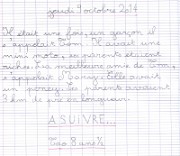 jeudi 9 octobre 2014
Il était une fois, un garçon il
s'appelait Tom. Il avait une
mini moto, ses parents étaient
riches. La meilleure amie de Tom,
s'appelait Mary. Elle avait
un poney, ses parents avaient
7 km de pré en longueur.
A SUIVRE...
Tao 8 ans ½